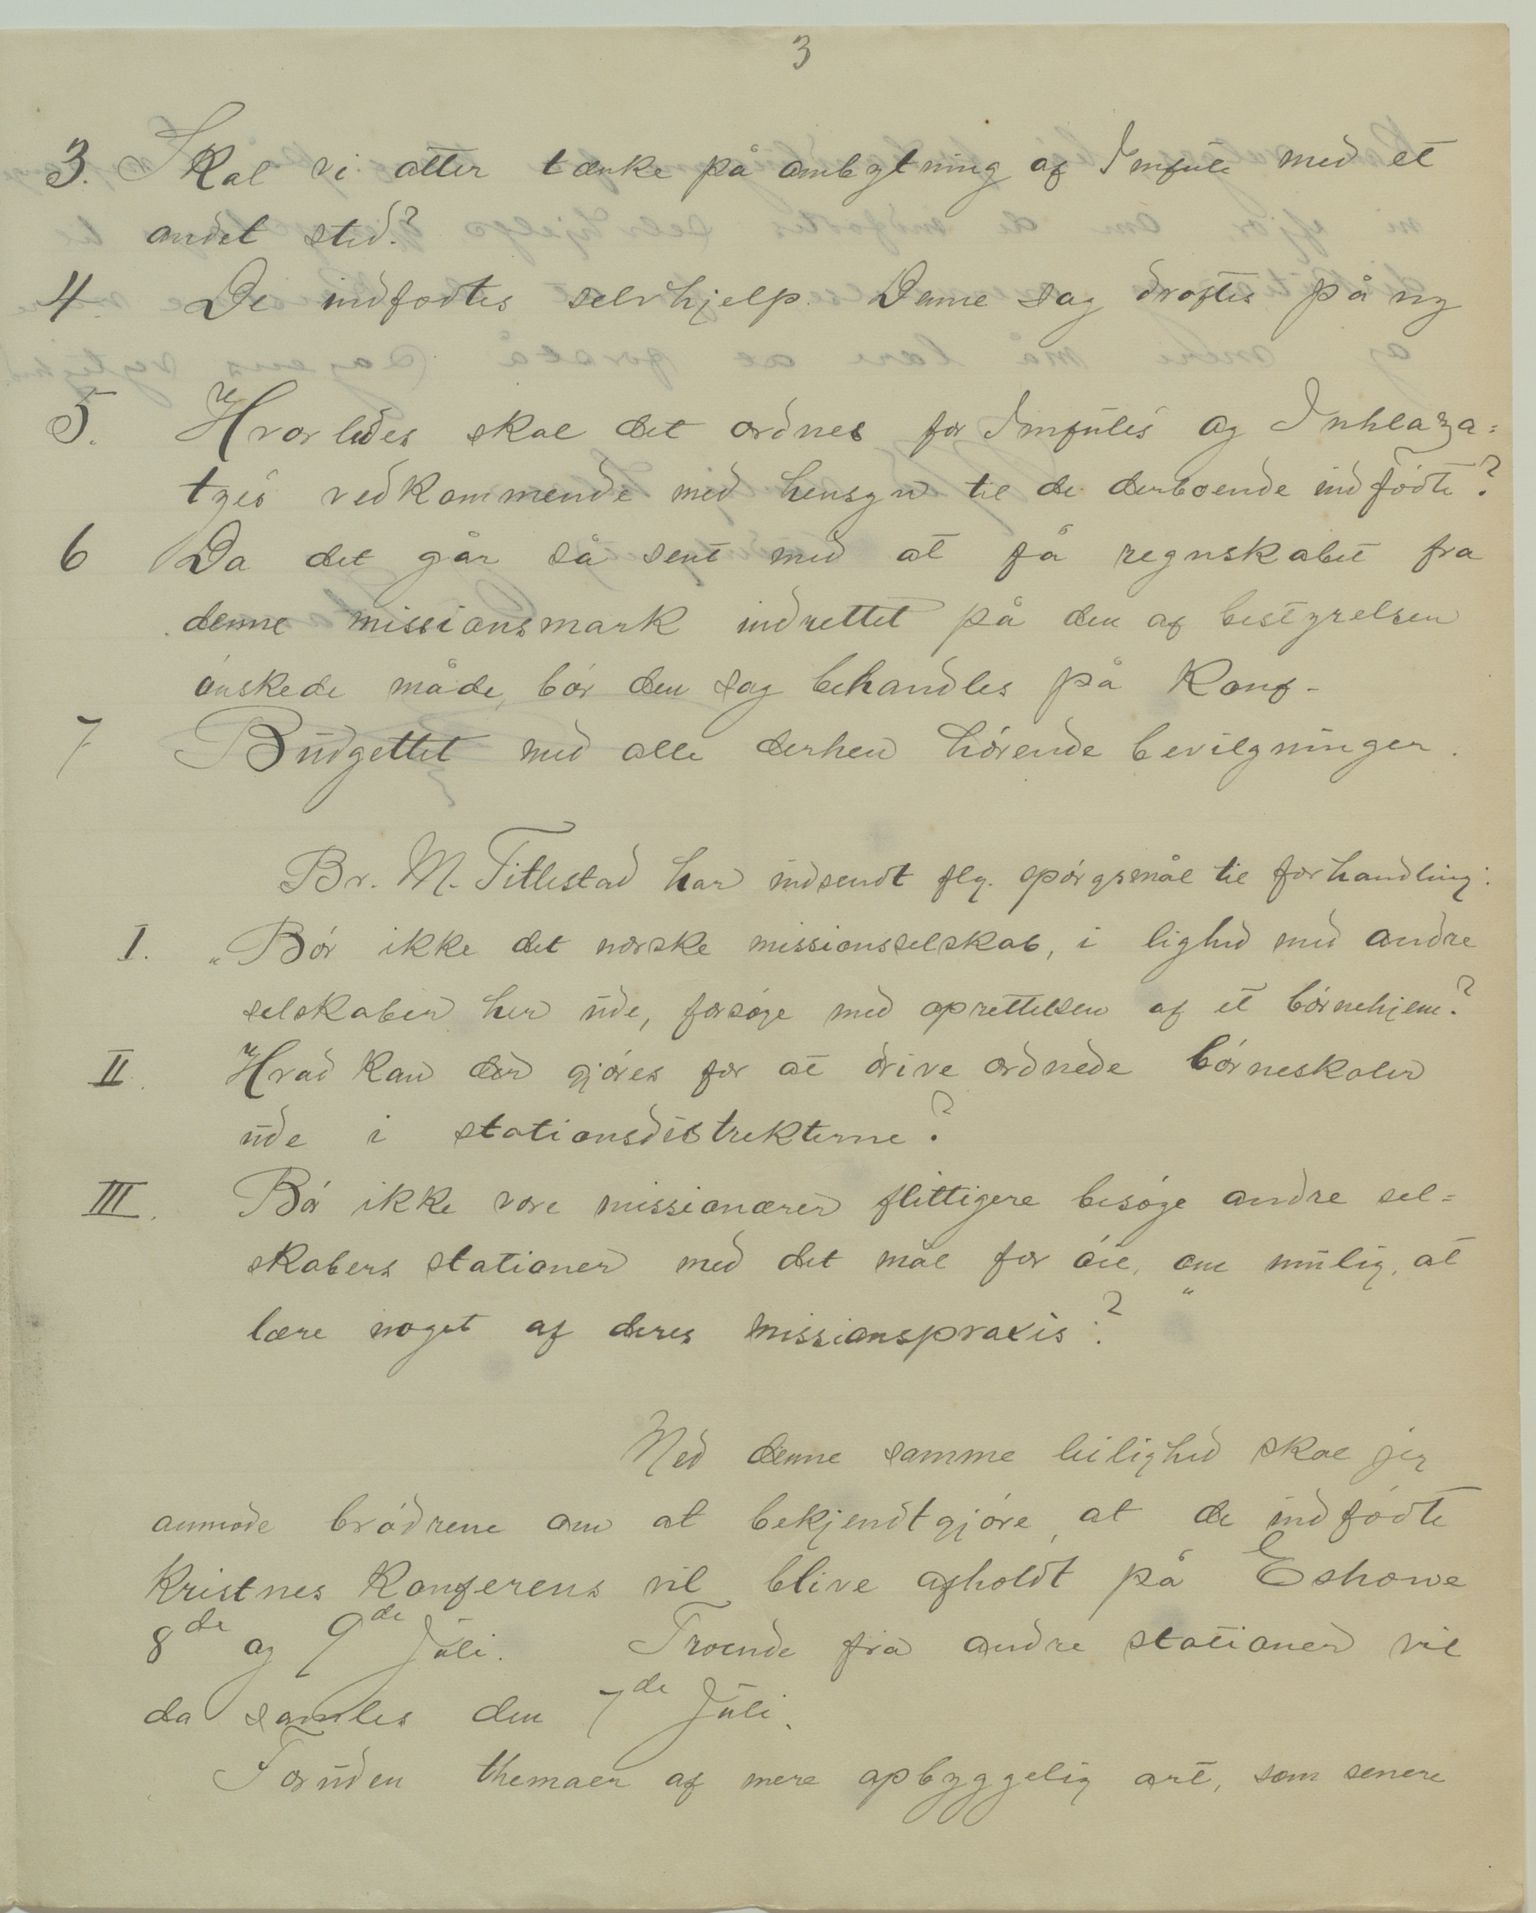 3
3. Skal vi atter tænke på ombytning af Imfule med et
andet sted?
4. De indfødtes selvhjelp. Denne sag drøftes på ny
5. Hvorledes skal det ordnes for Imfules og Inhlaza=
tyes vedkommende med hensyn til de derboende indfødte?
6 Da det går så sent med at få regnskabet fra
denne missionsmark indrettet på den af bestyrelsen
ønskede måde, bør den sag behandles på Konf-
7 Budgettet med alle derhen hørende bevilgninger.
Br. M. Titlestad har indsendt flg. spørgsmål til forhandling:
I. „Bør ikke det norske missionsselskab, i lighed med andre
selskaber her ude, forsøge med oprettelsen af et børnehjem?
II. Hvad kan der gjøres for at drive ordnede børneskoler
ude i stationsdistrekterne?
III. Bør ikke vore missionærer flittigere besøge andre sel=
skabers stationer med det mål for øie, om mulig, at
lære noget af deres missionspraxis?"
Med denne samme leilighed skal jeg
anmode brødrene om at bekjendtgjøre, at de indfødte
kristnes konferens vil blive afholdt på Eshowe
8de og 9de Juli. Troende fra andre stationer vil
da samles den 7de Juli.
Foruden themaer af mere opbyggelig art, som senere